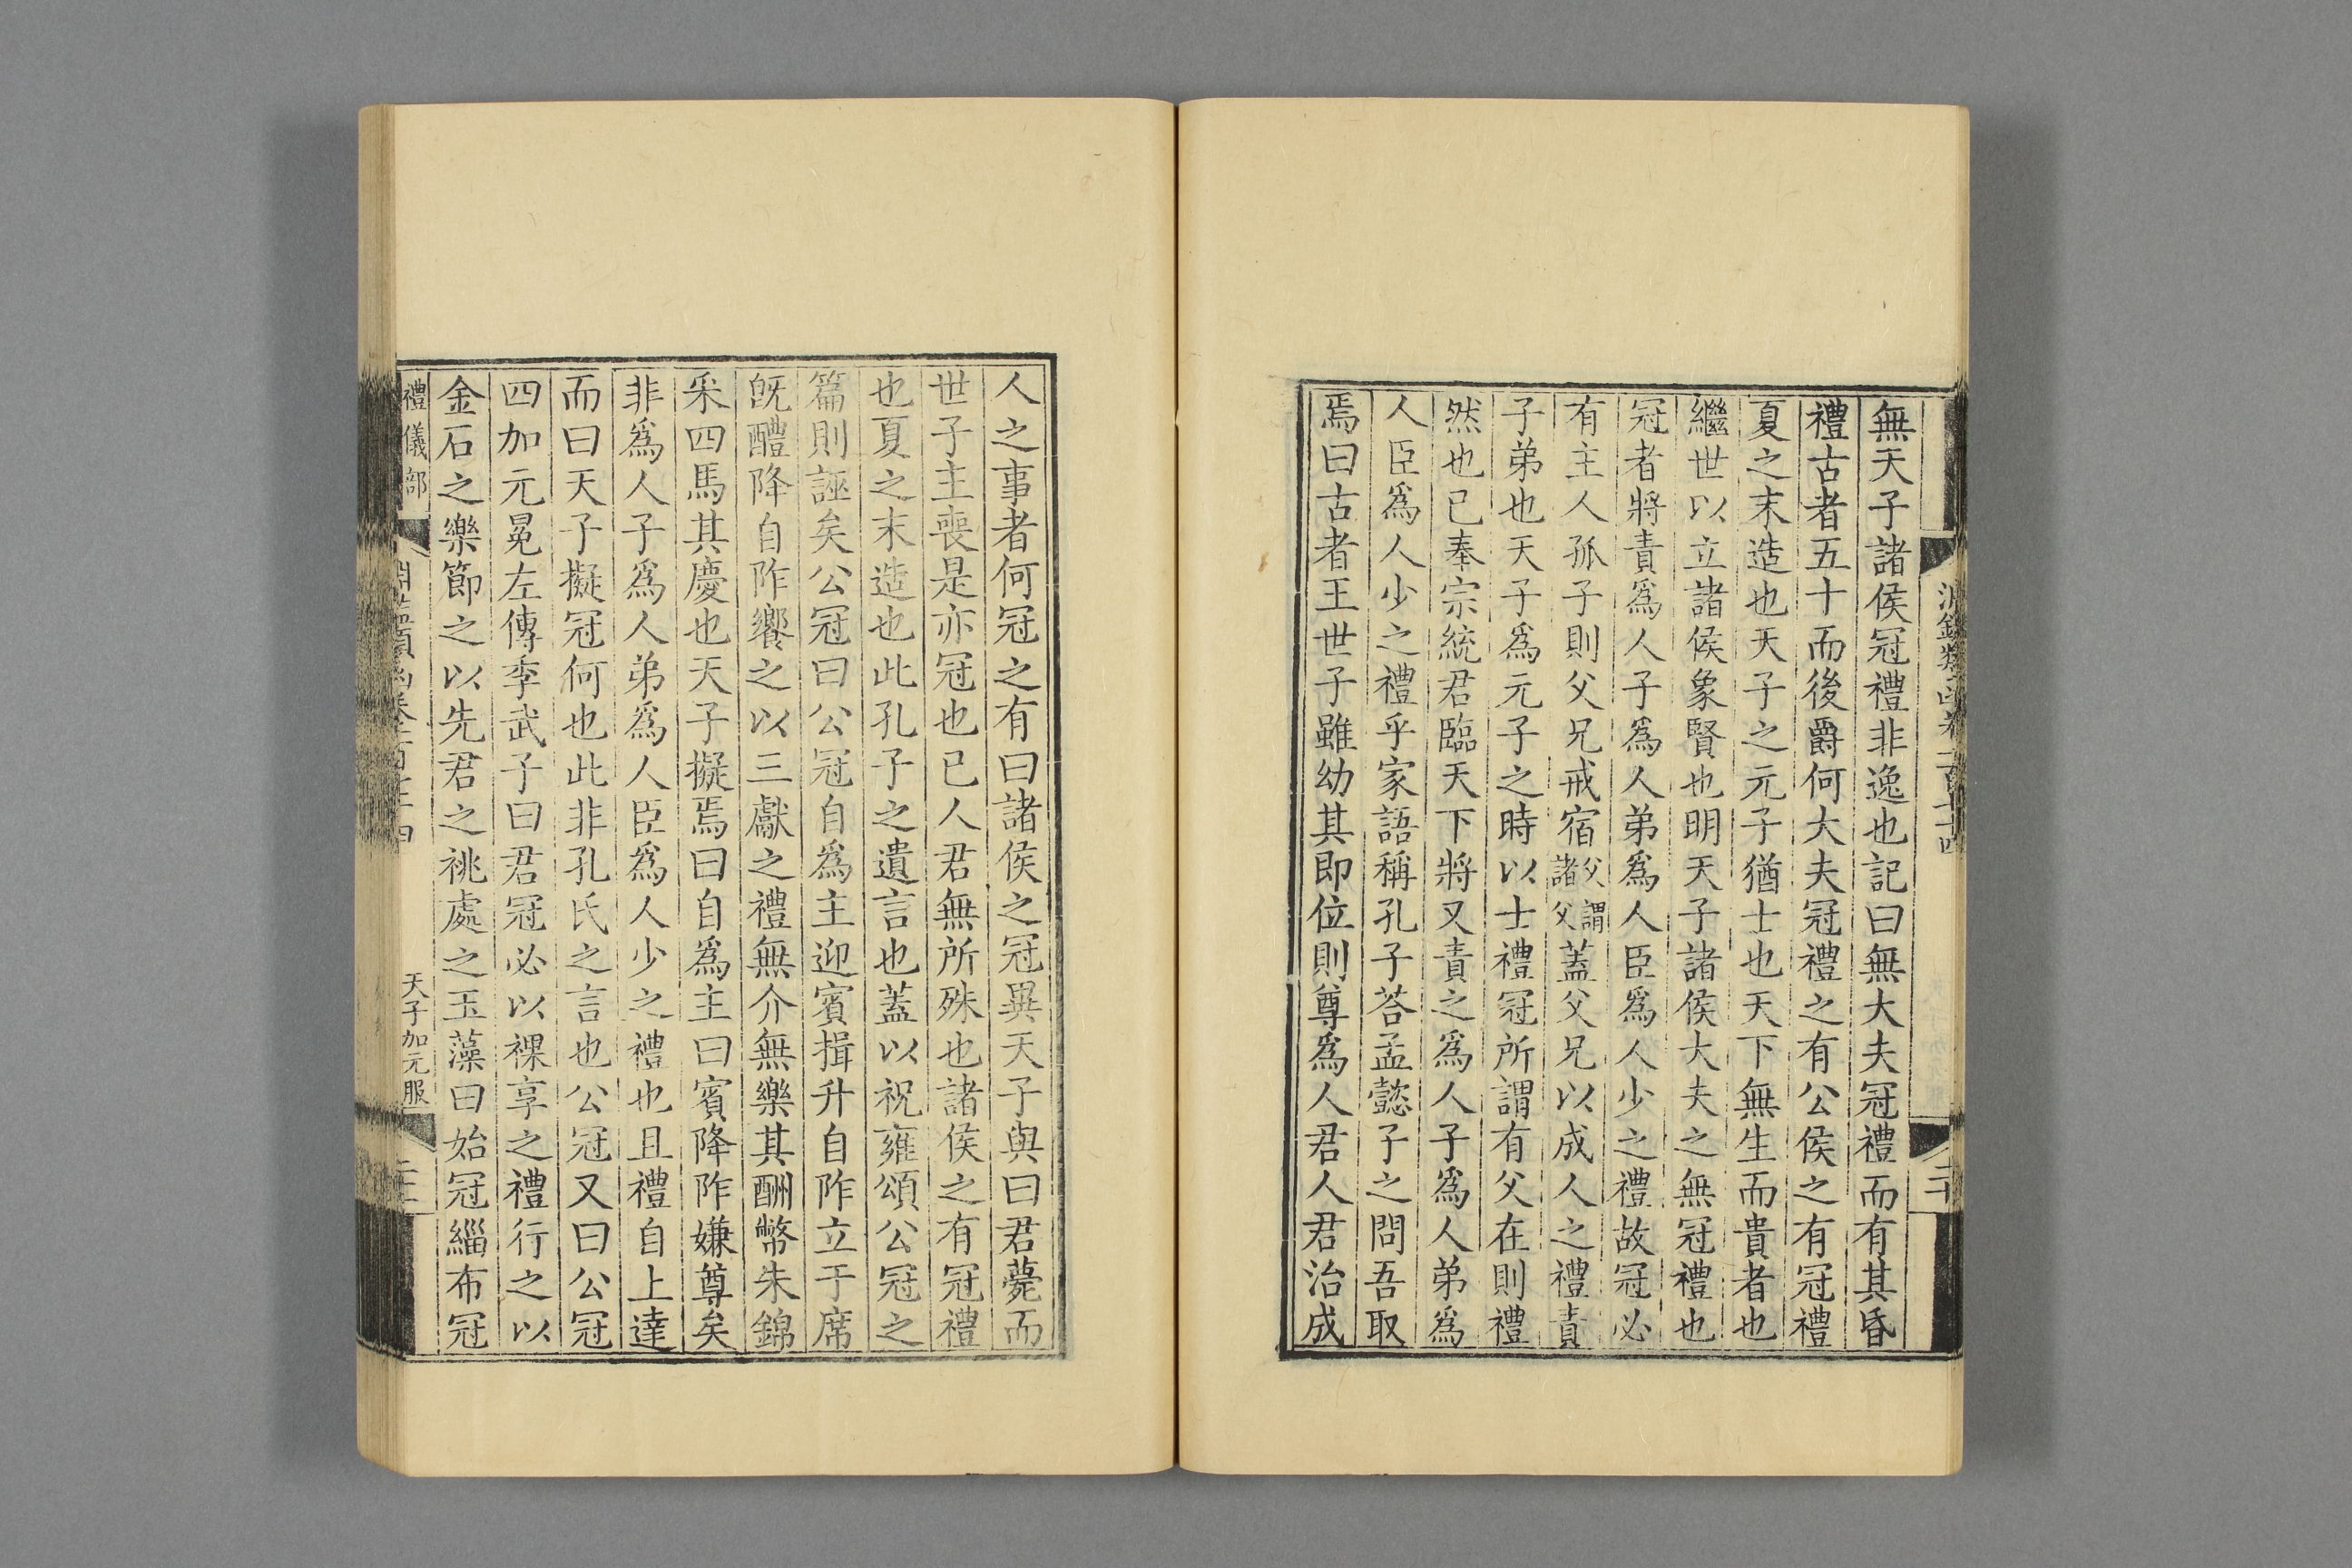 無天子諸侯冠禮非逸也記曰無大夫冠禮而有其昏
禮古者五十而後爵何大夫冠禮之有公侯之有冠禮
夏之末造也天子之元子猶士也天下無生而貴者也
繼世以立諸侯象賢也明天子諸侯大夫之無冠禮也
冠者將責爲人子爲人弟爲人臣爲人少之禮故冠必
有主人孤子則父兄戒宿父謂諸父蓋父兄以成人之禮責
子弟也天子爲元子之時以士禮冠所謂有父在則禮
然也已奉宗統君臨天下將又責之爲人子爲人弟爲
人臣爲人少之禮乎家語稱孔子荅孟懿子之問吾取
焉曰古者王世子雖幼其即位則尊爲人君人君治成
人之事者何冠之有曰諸侯之冠異天子與曰君薨而
世子主喪是亦冠也已人君無所殊也諸侯之有冠禮
也夏之末造也此孔子之遺言也蓋以祝雍頌公冠之
篇則誣矣公冠曰公冠自爲主迎賓揖升自阼立于席
旣醴降自阼饗之以三獻之禮無介無樂其酬幣朱錦
采四馬其慶也天子擬焉曰自爲主曰賓降阼嫌尊矣
非爲人子爲人弟爲人臣爲人少之禮也且禮自上達
而曰天子擬冠何也此非孔氏之言也公冠又曰公冠
四加元冕左傳季武子曰君冠必以祼享之禮行之以
金石之樂節之以先君之祧處之玉藻曰始冠緇布冠
禮儀部
天子加元服